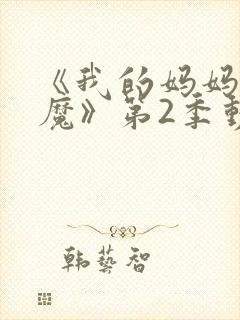 《我的妈妈
魔》第2季
韩艺智